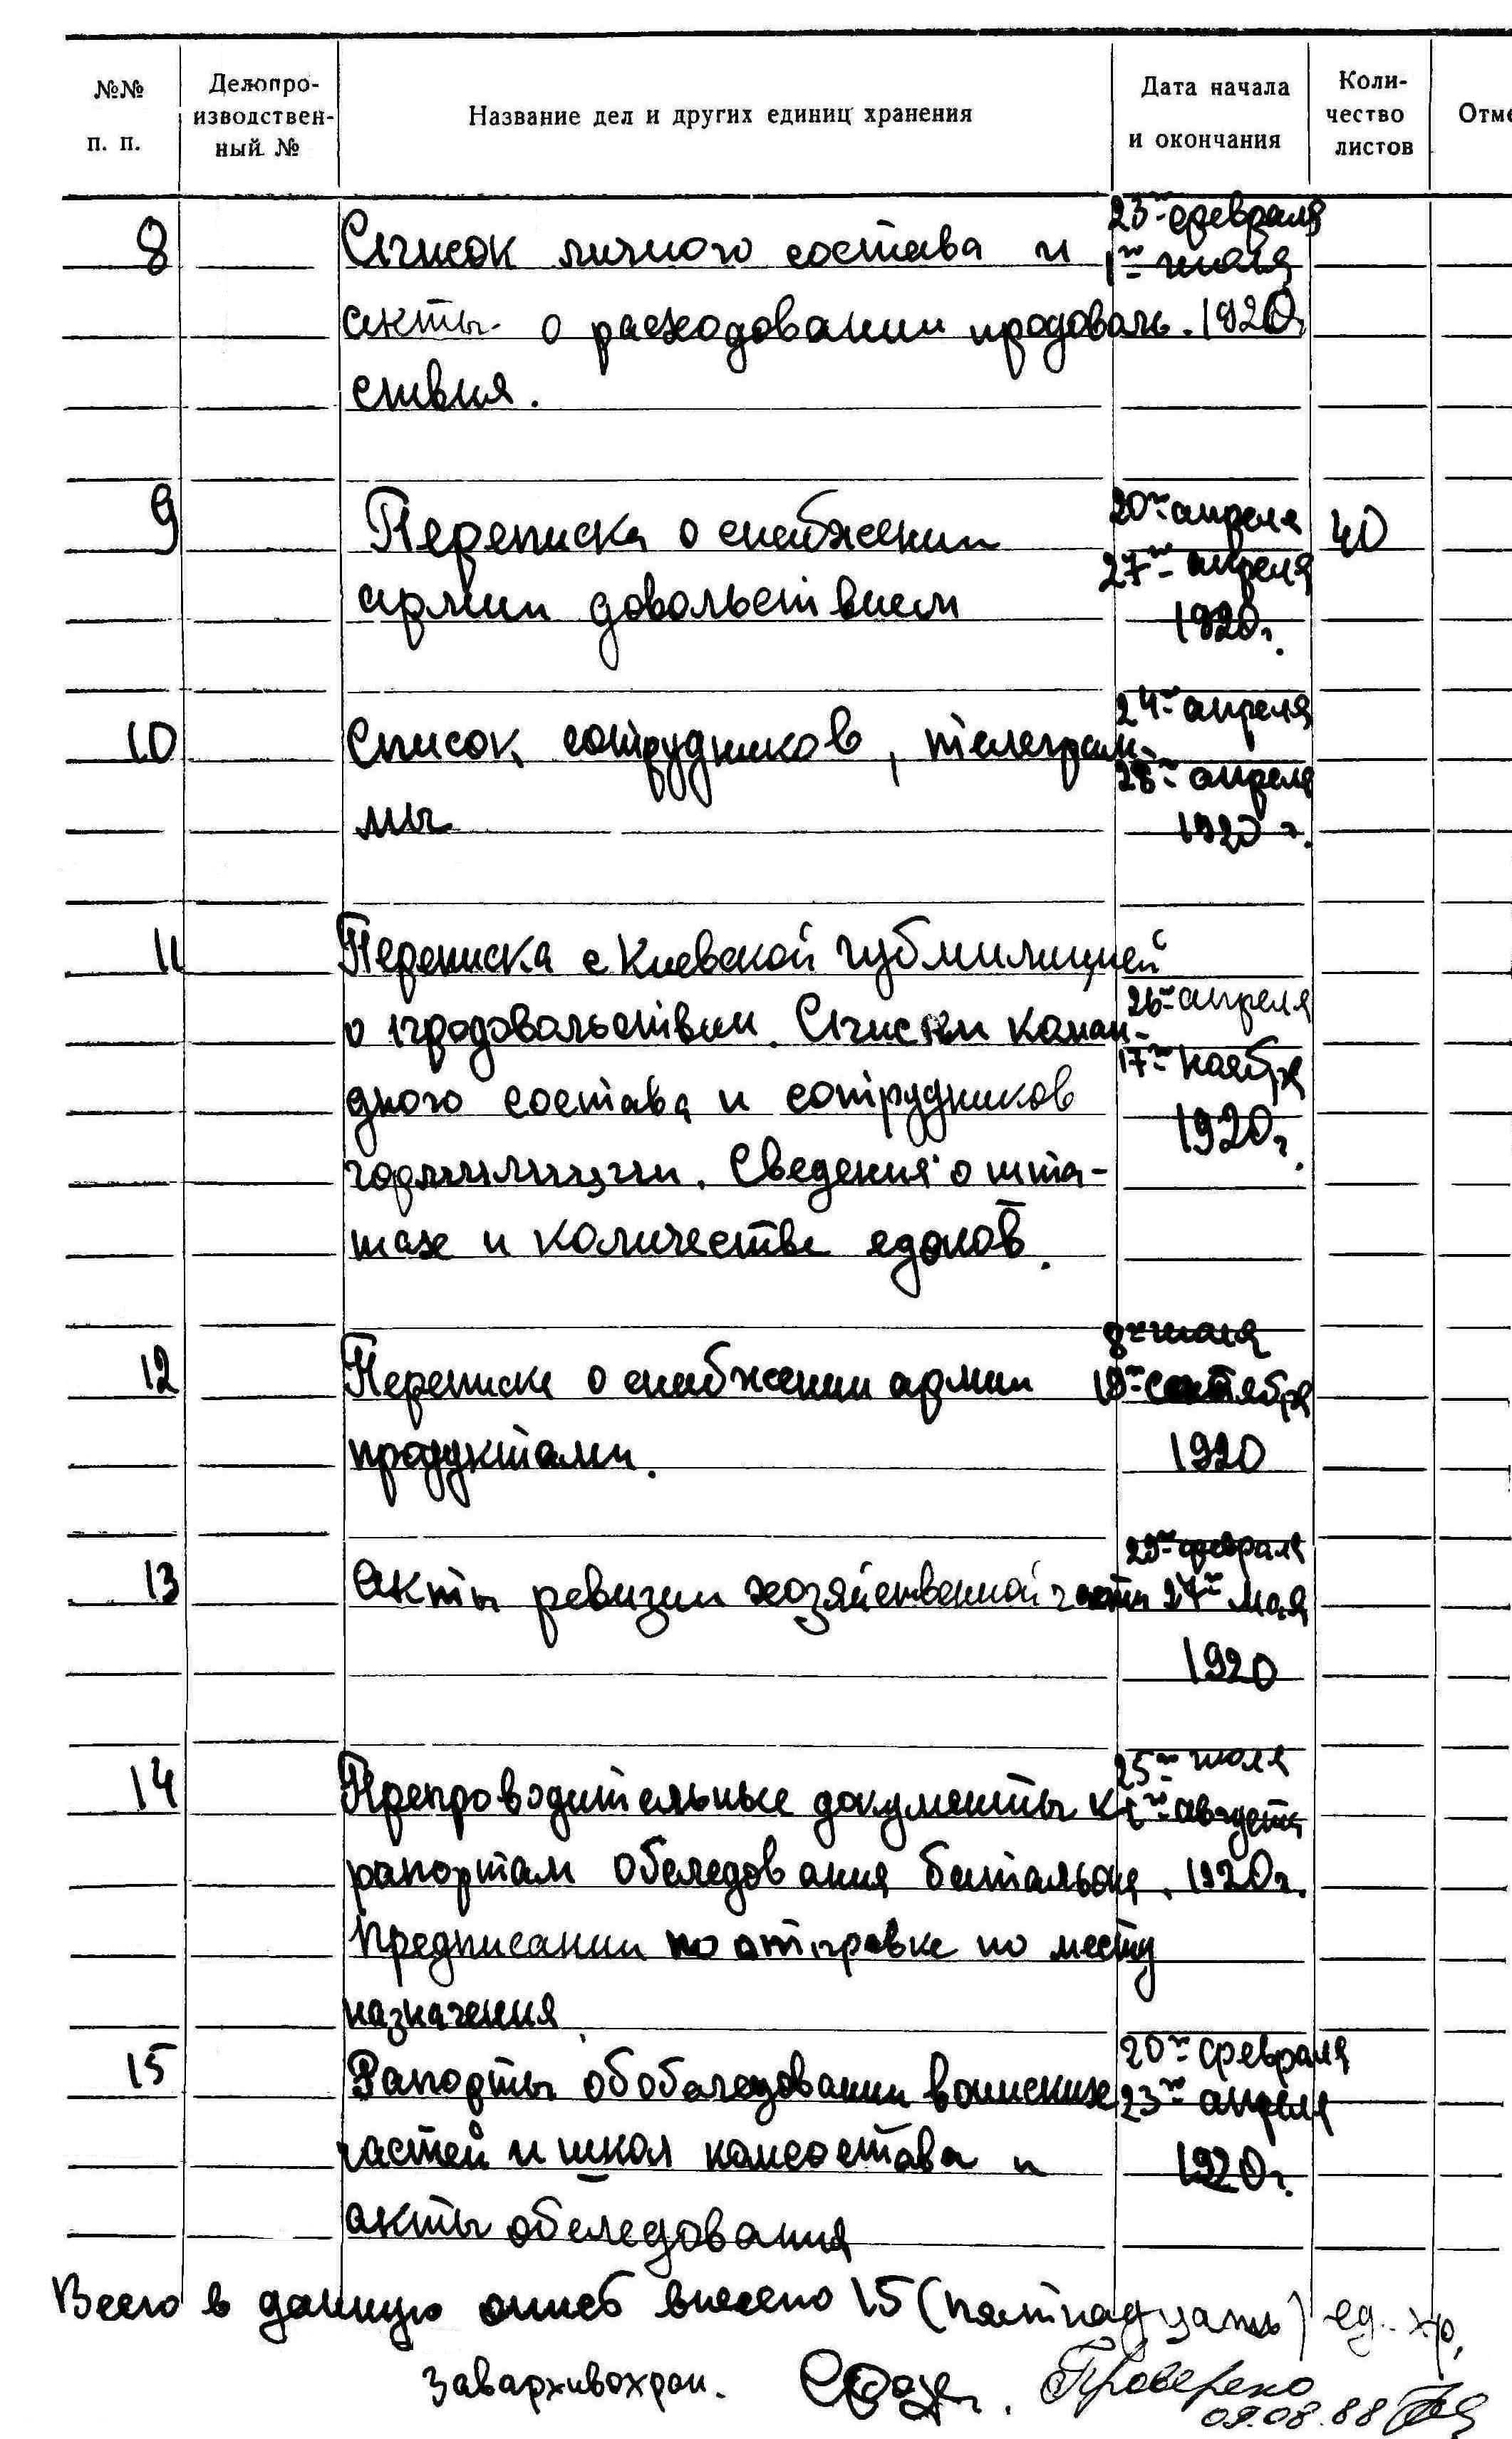 №№ п. п.
Делопро-
изводствен-
ный №
Название дел и других единиц хранения
Дата начала
и окончания
Коли-
чество
листов
Отме
8 Список личного состава и
акты о расходовании продоволь-
ствия.
23го февраля
1го июля
1920г
9 Переписка о снабжении
армии довольствием
20го апреля
27го апреля
1920г.
40
10 Список сотрудников, телеграм-
мы
24го апреля
28го апреля
1920 г.
11 Переписка с Киевской губмилицией
о продовольствии. Списки коман-
дного состава и сотрудников
гормилиции. Сведения о шта-
тах и количестве едоков.
26го апреля
17го ноября
1920г.
12 Переписка о снабжении армии
продуктами.
8го июля
19го сентября
1920
13 Акты ревизии хозяйственной части
29го февраля
27го мая
1920
14 Препроводительные документы к
рапортам обследования батальона,
предписании по отправке по месту
назначения
25го июля
августа
1920г.
15 Рапорты об обследовании воинских
частей и школ комсостава и
акты обследования
20го февраля
23го апреля
1920г.
Всего в данную опись внесено 15 (пятнадцать) ед. хр.
Завархивохран.
Проверено
09.08.88